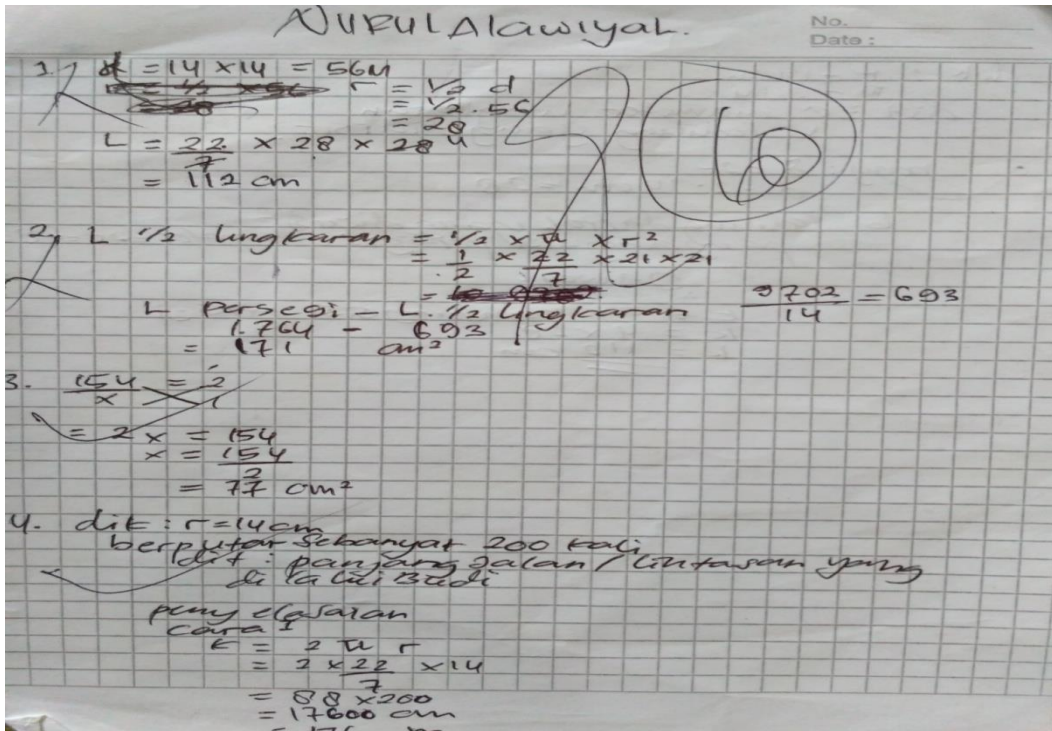 NURUL Alawiyah.
No.
Date :
1. = 14 × 14 = 56 r = 1/2 d
= 1/2 . 56
= 28
L = 22/7 × 28 × 28
= 112 cm
6
2. L 1/2 lingkaran = 1/2 × π × r²
= 1/2 × 22/7 × 21 × 21
9702/14 = 693
L persegi - L. 1/2 lingkaran
1.764 - 693
= 171 cm²
3. 154/x = 2/1
= 2x = 154
x = 154/2
= 77 cm²
4. dik : r = 14 cm
berputar sebanyak 200 kali
dit : panjang jalan / lintasan yang
di lalui Budi
penyelasaian
cara 1
K = 2 π r
= 2 × 22/7 × 14
= 88 × 200
= 17600 cm